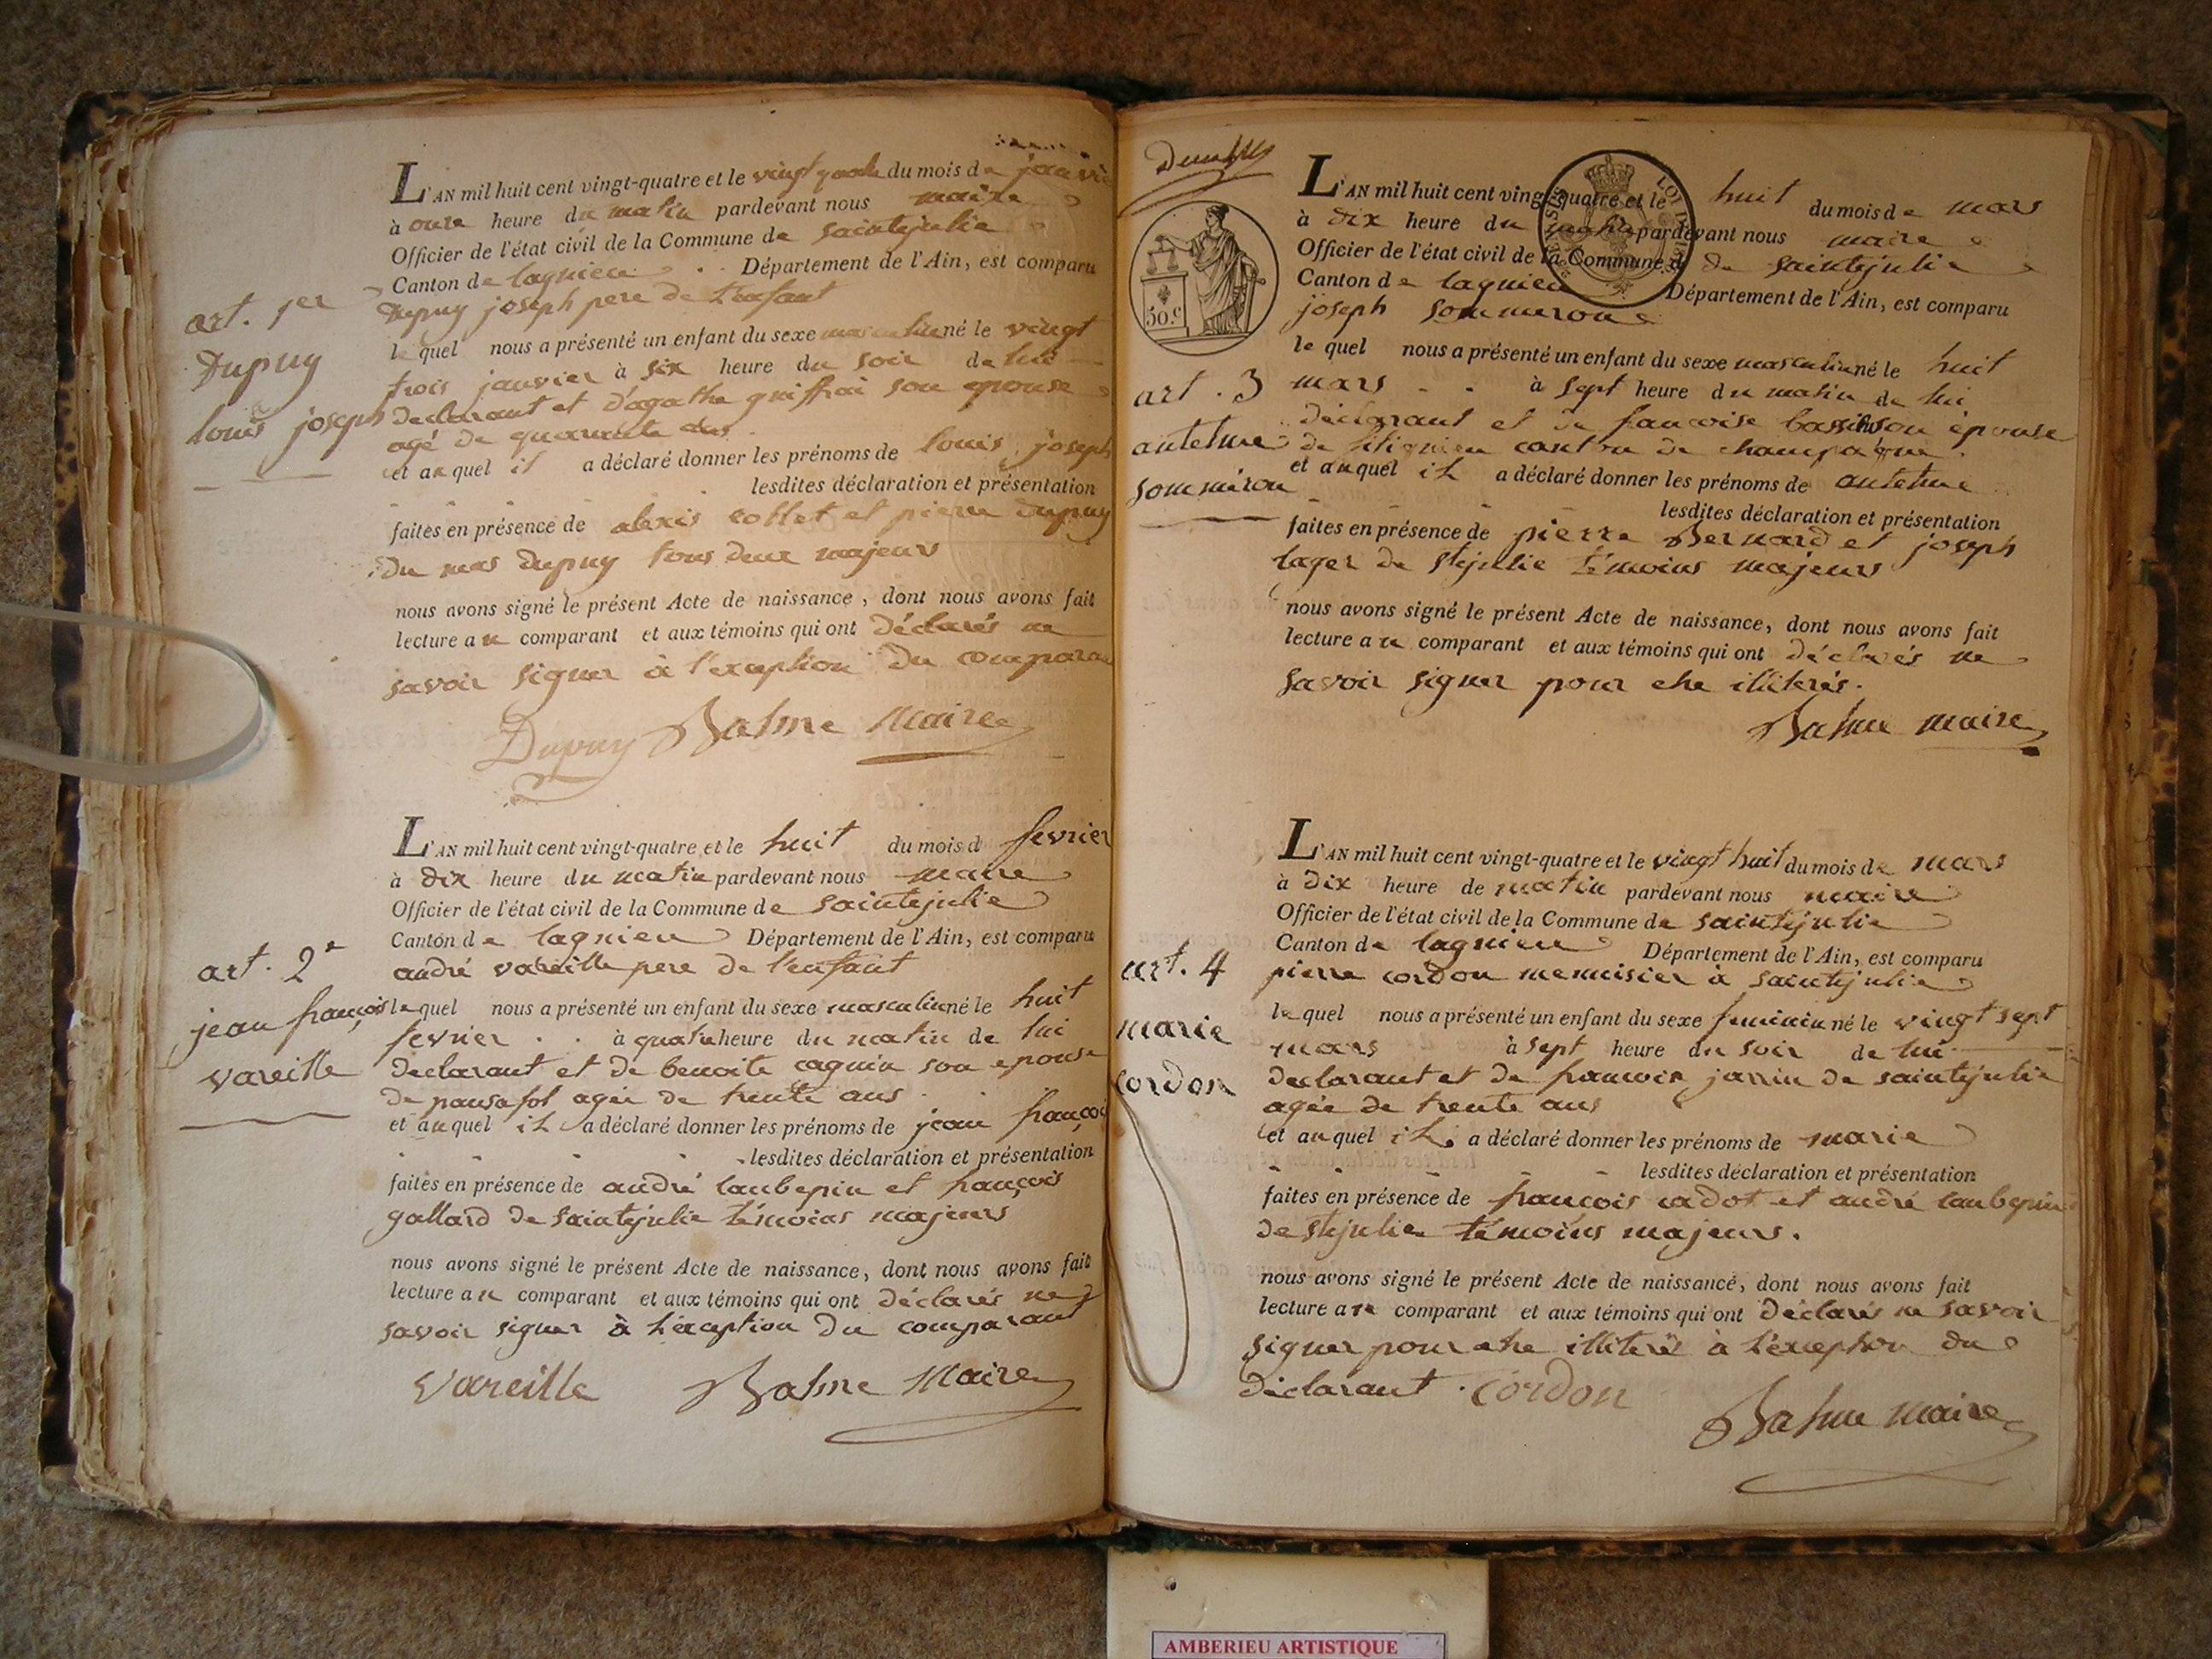 L'AN mil huit cent vingt-quatre et le vingt quatre du mois de janvier
à onze heure du matin pardevant nous maire
Officier de l'état civil de la Commune de saintejulie
Canton de lagnieu Département de l'Ain, est comparu
Dupuy joseph pere de l'enfant
art. 1er
Dupuy
louis joseph
lequel nous a présenté un enfant du sexe masculin né le vingt
trois janvier à six heure du soir de lui
declarant et d'agathe son epouse
agé de quarante ans
et auquel il a déclaré donner les prénoms de louis joseph
lesdites déclaration et présentation
faites en présence de alexis collet et pierre Dupuy
du mas Dupuy tous deux majeurs
nous avons signé le présent Acte de naissance, dont nous avons fait
lecture au comparant et aux témoins qui ont déclarés ne
savoir signer à l'exception du comparant
Dupuy Balme Maire
L'AN mil huit cent vingt-quatre et le huit du mois d fevrier
à dix heure du matin pardevant nous maire
Officier de l'état civil de la Commune de saintejulie
Canton de lagnieu Département de l'Ain, est comparu
andré vareille pere de l'enfant
art. 2e
jean françois
vareille
lequel nous a présenté un enfant du sexe masculin né le huit
fevrier à quatre heure du matin de lui
declarant et de benoite cagnin son epouse
de pansafol agée de trente ans
et auquel il a déclaré donner les prénoms de jean françois
lesdites déclaration et présentation
faites en présence de andré laubepin et françois
gallard de saintejulie témoins majeurs
nous avons signé le présent Acte de naissance, dont nous avons fait
lecture au comparant et aux témoins qui ont déclarés ne
savoir signer à l'exception du comparant
Vareille Balme Maire
50.c
L'AN mil huit cent vingt-quatre et le huit du mois de mars
à dix heure du matin pardevant nous maire
Officier de l'état civil de la Commune d de saintejulie
Canton de lagnieu Département de l'Ain, est comparu
joseph sommeron
art. 3
antelme
sommiron
lequel nous a présenté un enfant du sexe masculin né le huit
mars à sept heure du matin de lui
déclarant et de epouse
de canton de champagne
et auquel il a déclaré donner les prénoms de antelme
lesdites déclaration et présentation
faites en présence de pierre Bernard et joseph
lager de stejulie témoins majeurs
nous avons signé le présent Acte de naissance, dont nous avons fait
lecture au comparant et aux témoins qui ont déclarés ne
savoir signer pour etre illiterés.
Balme maire
L'AN mil huit cent vingt-quatre et le vingt huit du mois de mars
à dix heure de matin pardevant nous maire
Officier de l'état civil de la Commune de saintejulie
Canton de lagnieu Département de l'Ain, est comparu
pierre cordon menuisier à saintejulie
art. 4
marie
cordon
lequel nous a présenté un enfant du sexe feminin né le vingt sept
mars à sept heure du soir de lui
declarant et de janin de saintejulie
agée de trente ans
et auquel il a déclaré donner les prénoms de marie
lesdites déclaration et présentation
faites en présence de françois cadot et andré laubepin
de stejulie témoins majeurs.
nous avons signé le présent Acte de naissance, dont nous avons fait
lecture au comparant et aux témoins qui ont déclarés ne savoir
signer pour etre illiterés à l'exception du
déclarant. Cordon
Balme maire
AMBERIEU ARTISTIQUE